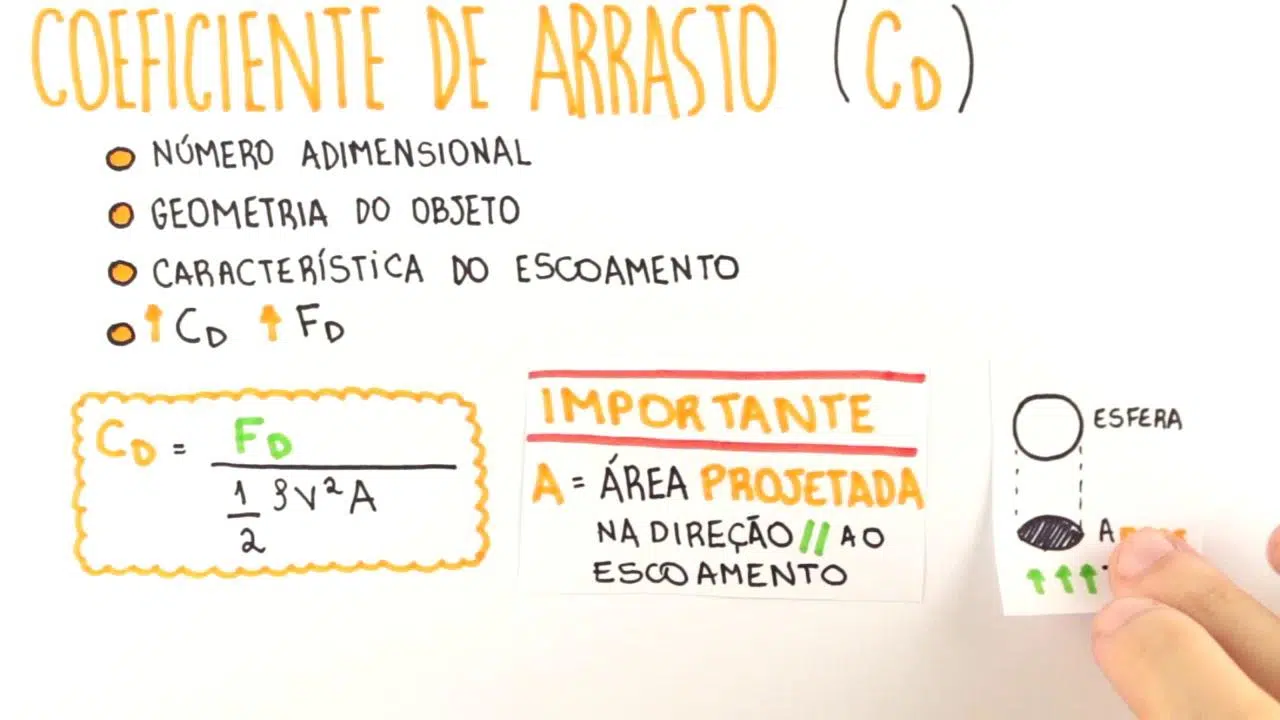 COEFICIENTE DE ARRASTO (CD)
NÚMERO ADIMENSIONAL
GEOMETRIA DO OBJETO
CARACTERÍSTICA DO ESCOAMENTO
↑ CD ↑ FD
CD = FD
1/2 ρV²A
IMPORTANTE
A = ÁREA PROJETADA
NA DIREÇÃO // AO
ESCOAMENTO
ESFERA
A
↑↑↑